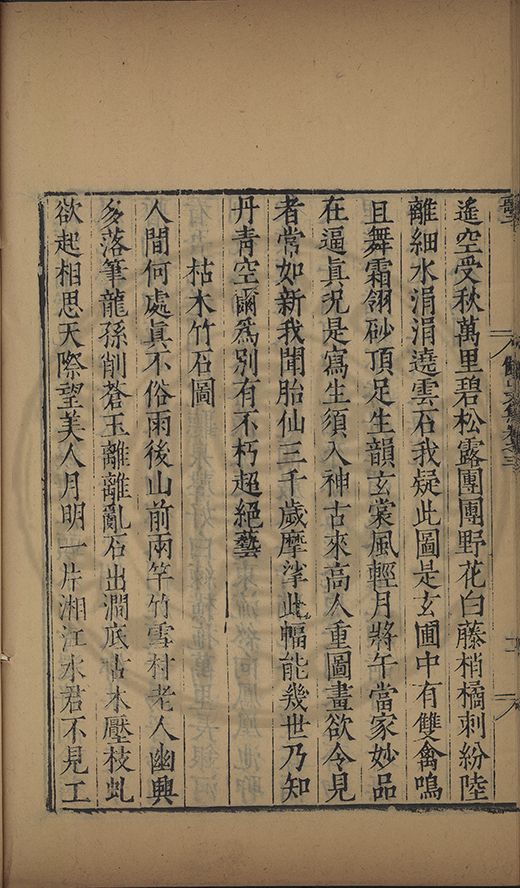 遙空受秋萬里碧松露團團野花白藤梢橘刺紛陸
離細水涓涓遶雲石我疑此圖是玄圃中有雙禽鳴
且舞霜翎砂頂足生韻玄裳風輕月將午當家妙品
在逼眞况是寫生須入神古來高人重圖畫欲令見
者常如新我聞胎仙三千歲摩挲此幅能幾世乃知
丹青空爾爲別有不朽超絕藝
枯木竹石圖
人間何處眞不俗雨後山前兩竿竹雪村老人幽興
多落筆龍孫削蒼玉離離亂石出澗底枯木壓枝虬
欲起相思天際望美人月明一片湘江水君不見工